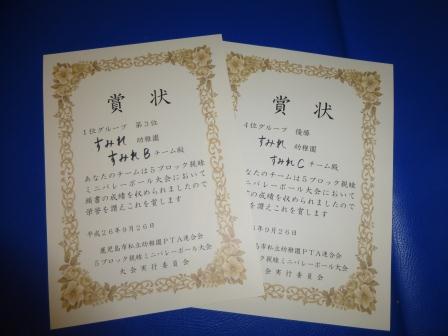 賞状
1位グループ 第3位
すみれ 幼稚園
すみれB チーム殿
あなたのチームは5ブロック親睦
ミニバレーボール大会において
頭書の成績を収められましたので
栄誉を讃えこれを賞します
平成26年9月26日
鹿児島市私立幼稚園PTA連合会
5ブロック親睦ミニバレーボール大会
大会実行委員会
賞状
4位グループ 優勝
すみれ 幼稚園
すみれC チーム殿
なたのチームは5ブロック親睦
ニバレーボール大会において
の成績を収められましたので
を讃えこれを賞します
年9月26日
市私立幼稚園PTA連合会
ック親睦ミニバレーボール大会
会実行委員会